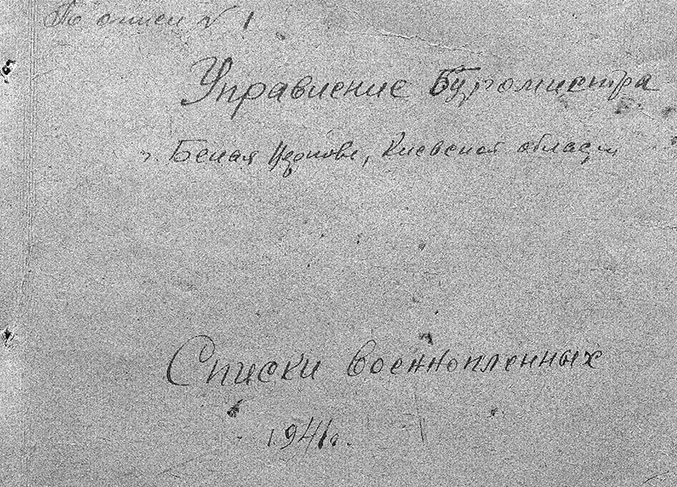 По описи № 1
Управление Бургомистра
г. Белая Церковь, Киевской области
Списки военнопленных
1941г.